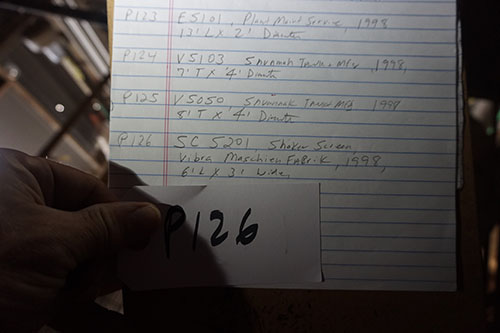 P123 E5101, Plant Maint Service, 1998
13' L X 2' Diameter
P124 V5103 Savannah Tower Mfg, 1998,
7' T X 4' Diameter
P125 V5050, Savannah Tower Mfg 1998
8' T X 4' Diameter
P126 SC 5201, Shaker Screen,
Vibra Maschien Fabrik, 1998,
6' L X 3' Wide,
P126